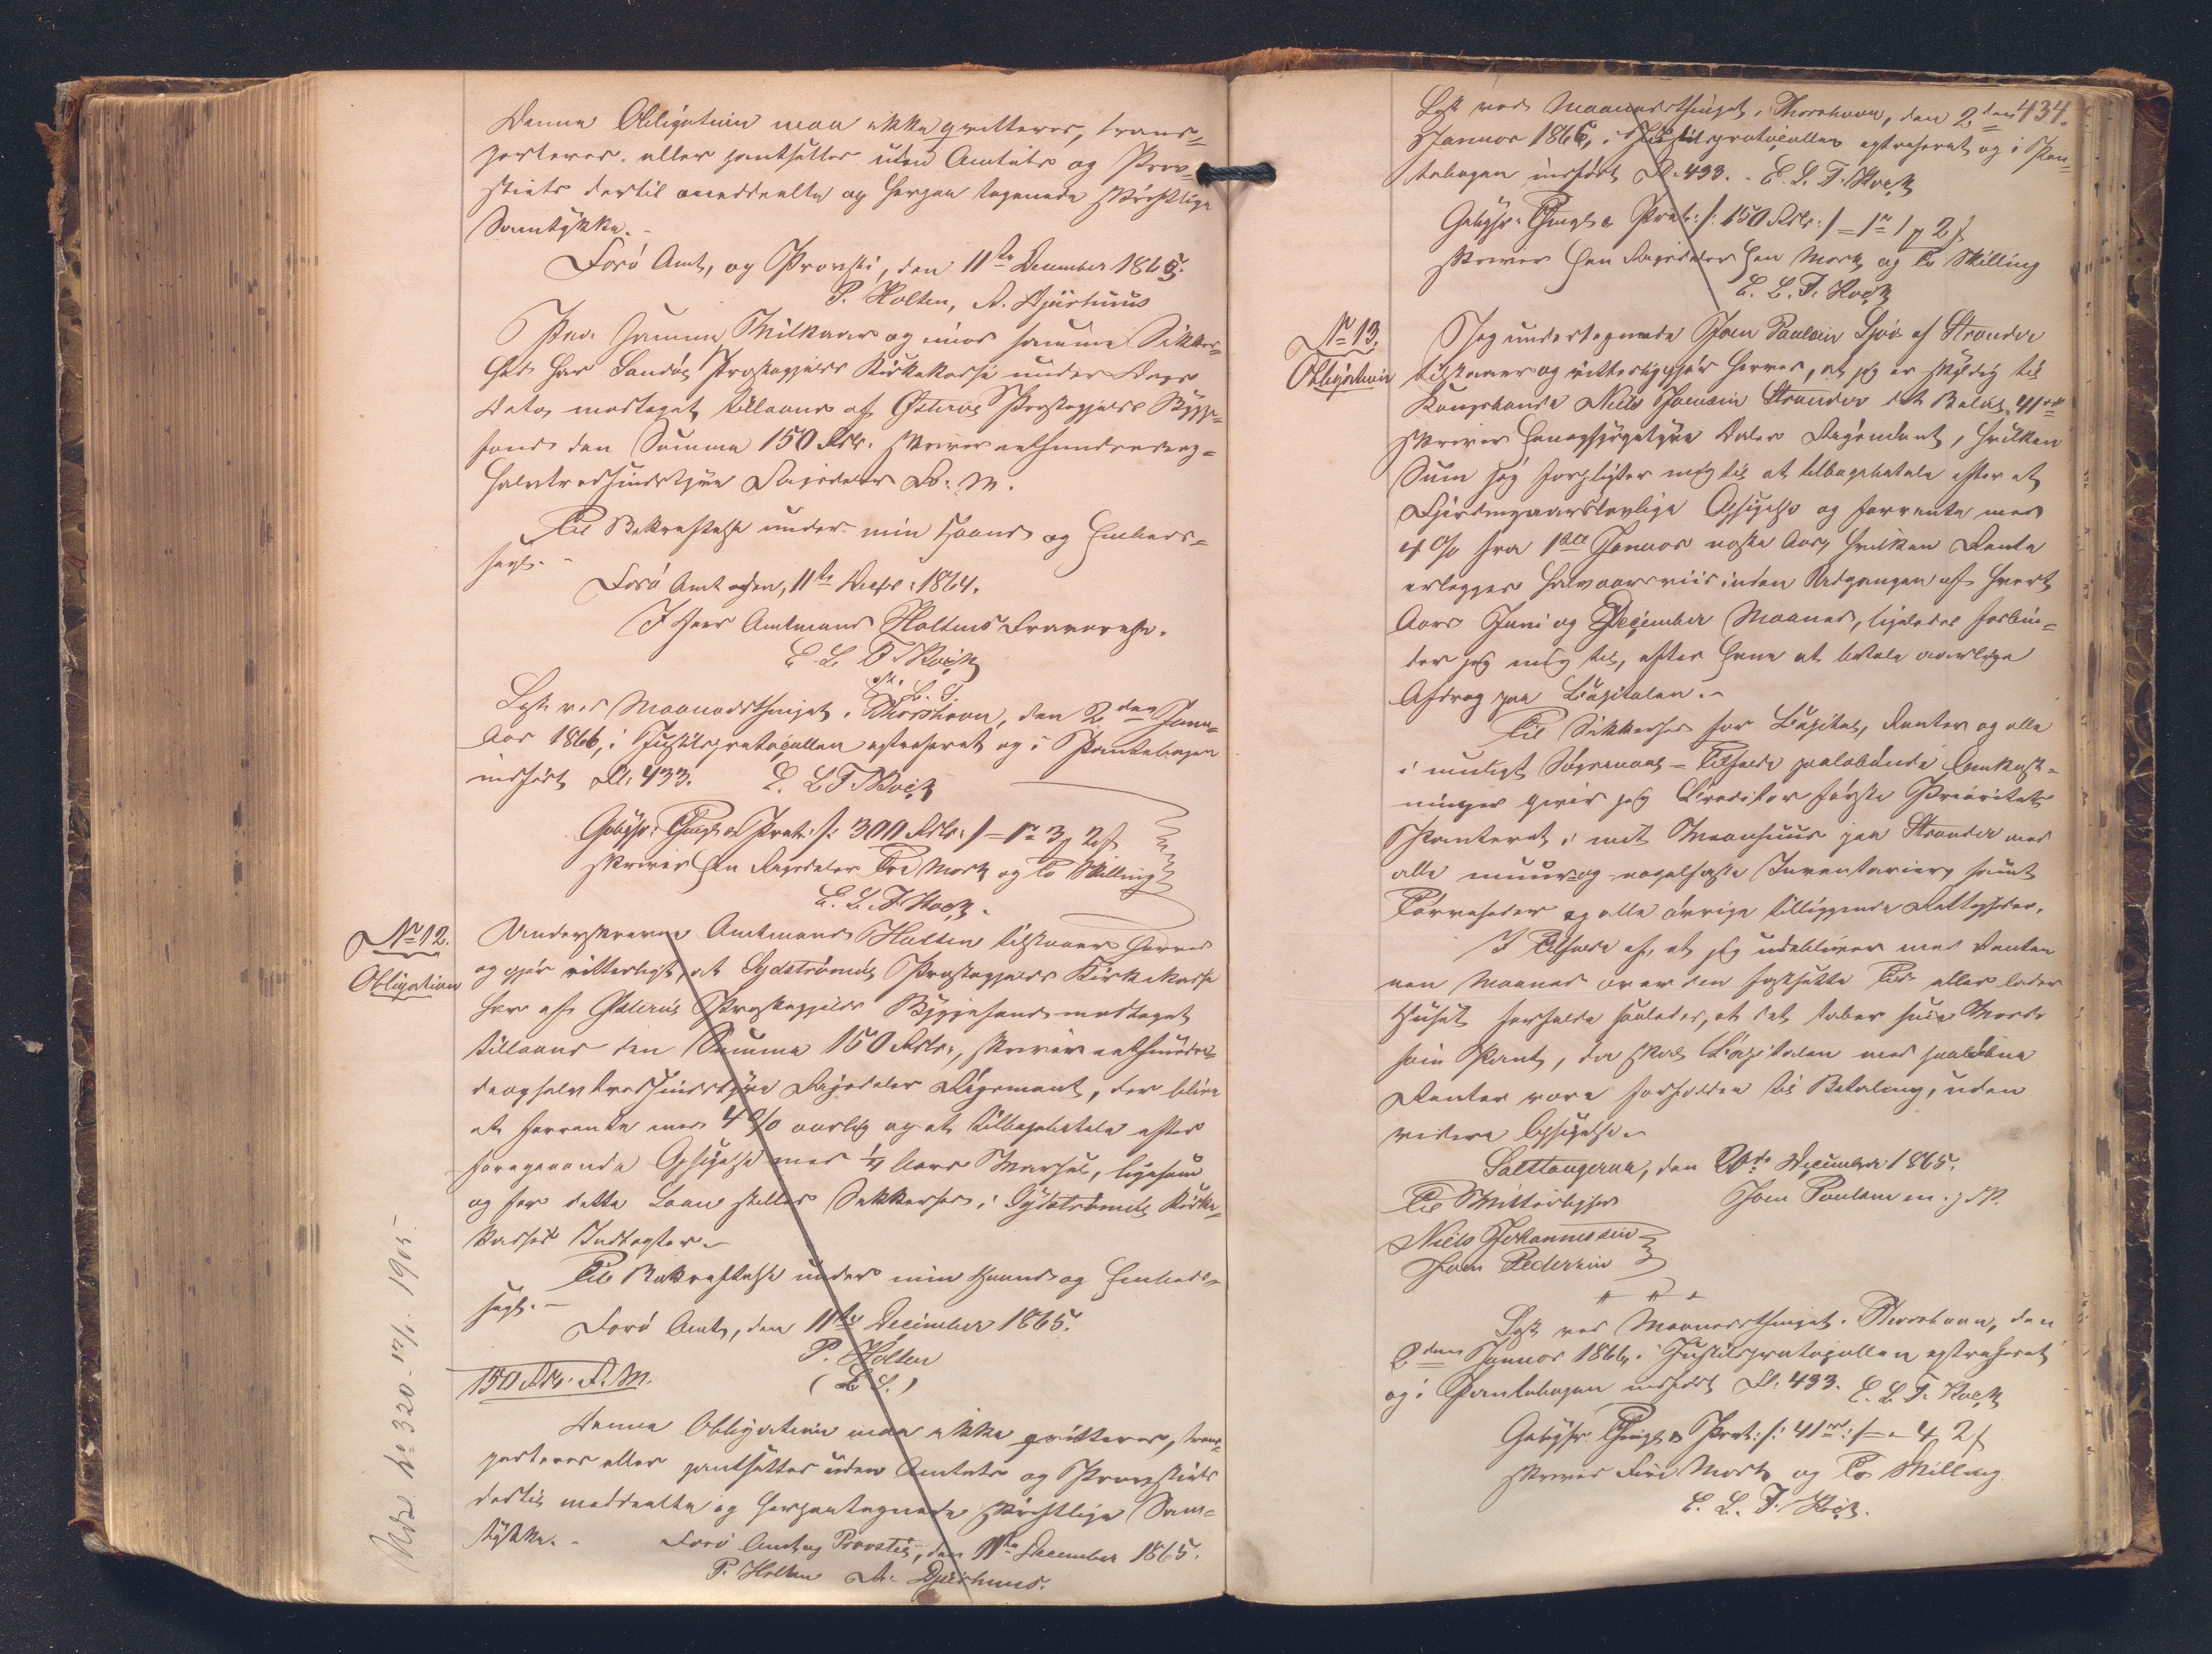 Denne Obligation maa ikke qvitteres, trans=
porteres eller pantsættes uden Amtets og Prov=
stiets dertil meddeelte og herpaa tegnede skriftlige
Samtykke.-
Færø Amt, og Provsti, den 11te December 1865.
P. Holten, A. Djurhuus
Paa samme Vilkaar og imod samme Sikker=
hed har Sandøs Præstegjelds Kirkekasse under Dags
Dato modtaget tillaans af Østerøs Præstegjelds Bygge=
fond den Summa 150 Rdlr. skriver eethundredeog=
halvtredsindstyve Rigsdaler R. M.
Til Bekræftelse under min Haand og Embeds=
segl.-
Færø Amt den, 11te Decbr. 1864.
I Herr Amtmand Holtens Fraværelse.
E. L. T. Kock
cst. L. S.
Læst ved Maanedsthinget i Thorshavn, den 2den Janu=
ar 1866, i Justitsprotocollen extraheret og i Pantebogen
indført Fl. 433. E. L. T. Kock
Gebyhr: Thingl. & Prot. /: 300 Rdlr. :/ = 1 rd 3 m 2 s
skriver Een Rigsdaler Tre Mark og To Skilling
E. L. T. Kock.
No 12.
Obligation
Underskrevne Amtmand Holten tilstaaer herved
og gjør vitterligt, at Sydstrømøs Præstegjelds Kirkekasse
har af Østerøs Præstegjelds Byggefond modtaget
tillaans den Summa 150 Rdlr., skriver eethundre=
deoghalvtredsindstyve Rigsdaler Rigsmont, der blive
at forrente med 4 % aarlig og at tilbagebetale efter
foregaaende Opsigelse med 1/4 Aars Varsel, ligesom
og for dette Laan stilles Sikkerhed i Sydstrømøs Kirke=
kasses Indtægter.-
Til Bekræftelse under min Haand og Embeds=
segl.-
Færø Amt, den 11te December 1865.
P. Holten
(L. S.)
150 Rdlr. R. M.
Denne Obligation maa ikke qvitteres, trans=
porteres eller pantsættes uden Amtets og Provstiets
dertil meddeelte og herpaategnede skriftlige Sam=
tykke.- Færø Amt og Provsti, den 11te December 1865.
P. Holten A. Djurhuus.
No 320 - 17/1. 1905.
434.
Læst ved Maanedsthinget i Thorshavn, den 2den
Januar 1866, i Justitsprotocollen extraheret og i Pan=
tebogen indført Fl. 433. - E. L. T. Kock
Gebyhr: Thingl. & Prot. /: 150 Rdlr. :/ = 1 rd 1 m 2 s
skriver Een Rigsdaler Een Mark og To Skilling
E. L. T. Kock
No 13.
Obligation
Jeg undertegnede Joen Paulsen af Strander
tilstaaer og vitterliggjør herved, at jeg er skyldig til
Kongsbonde Niels Joensen Strander det Beløb 41 rd
skriver Eenogfyrgetyve Daler Rigsmont, hvilken
Sum jeg forpligter mig til at tilbagebetale efter et
Fjerdingaars lovlige Opsigelse og forrente med
4 % fra 1ste Januar næste Aar, hvilken Rente
erlægges halvaarsviis inden Udgangen af hvert
Aars Juni og December Maaned, ligeledes forbin=
der jeg mig til, efter Evne at betale aarlige
Afdrag paa Capitalen.-
Til Sikkerhed for Capital, Renter og alle
i muligt Søgsmaals=Tilfælde paaløbende Omkost=
ninger giver jeg Creditor første Prioritets
Panteret i mit Vaanhuus paa Strander med
alle muur= og nagelfaste Inventarier, samt
Tørvesteder og alle øvrige tilliggende Rettigheder.
I Tilfælde af, at jeg udebliver med Renten
een Maaned over den fastsatte Tid eller lader
Huset forfalde saaledes, at det taber sin Værdi
som Pant, da skal Capitalen med paaløbne
Renter være forfalden til Betaling, uden
videre Opsigelse.
Salttangeraa, den 20de December 1865.
Til Vitterlighed Joen Paulsen m. f. P.
Niels Johannessen
Joen Pedersen
Læst ved Maanedsthinget i Thorshavn, den
2den Januar 1866, i Justitsprotocollen extraheret
og i Pantebogen indført Fl. 433. E. L. T. Kock
Gebyhr Thingl. & Prot. /: 41 rd :/ = 4 m 2 s
skriver Fire Mark og To Skilling
E. L. T. Kock.